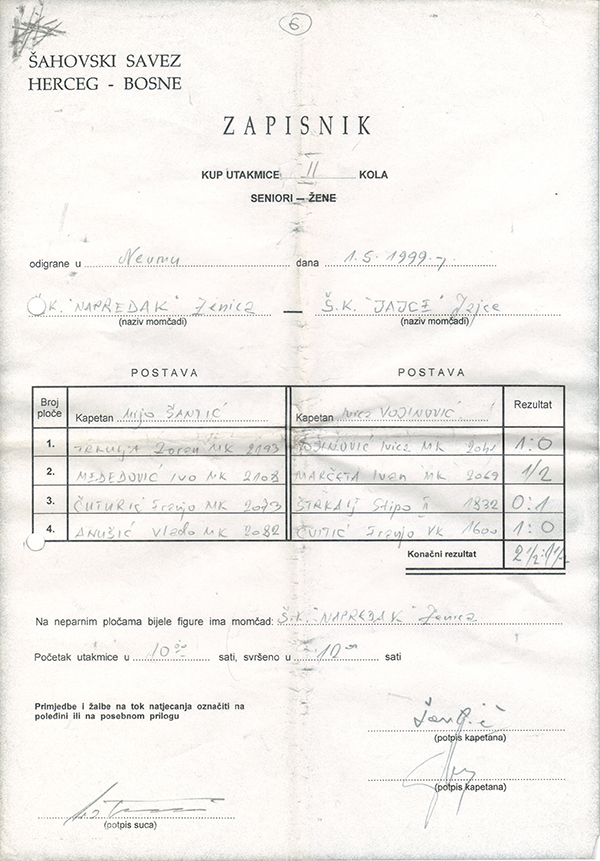 6
ŠAHOVSKI SAVEZ
HERCEG - BOSNE
ZAPISNIK
KUP UTAKMICE II KOLA
SENIORI – ŽENE
odigrane u Neumu dana 1.5.1999.
Š.K. "NAPREDAK" Zenica — Š.K. "JAJCE" Jajce
(naziv momčadi) (naziv momčadi)
POSTAVA POSTAVA
Broj ploče Kapetan Mijo ŠANTIĆ Kapetan Ivica VOJINOVIĆ Rezultat
1. TRKULJA Zoran MK 2193 VOJINOVIĆ Ivica MK 1:0
2. MEĐEDOVIĆ Ivo MK 2108 MARČETA Ivan MK 2069 1/2
3. ČUTURIĆ Franjo MK 2073 ŠTRKALJ Stipo II 1832 0:1
4. ANUŠIĆ Vlado MK 2082 CVITIĆ Franjo VK 1600 1:0
Konačni rezultat 2 1/2:1 1/2
Na neparnim pločama bijele figure ima momčad: Š.K. "NAPREDAK" Zenica
Početak utakmice u 10 00 sati, svršeno u sati
Primjedbe i žalbe na tok natjecanja označiti na
poleđini ili na posebnom prilogu
Šantić
(potpis kapetana)
(potpis kapetana)
(potpis suca)